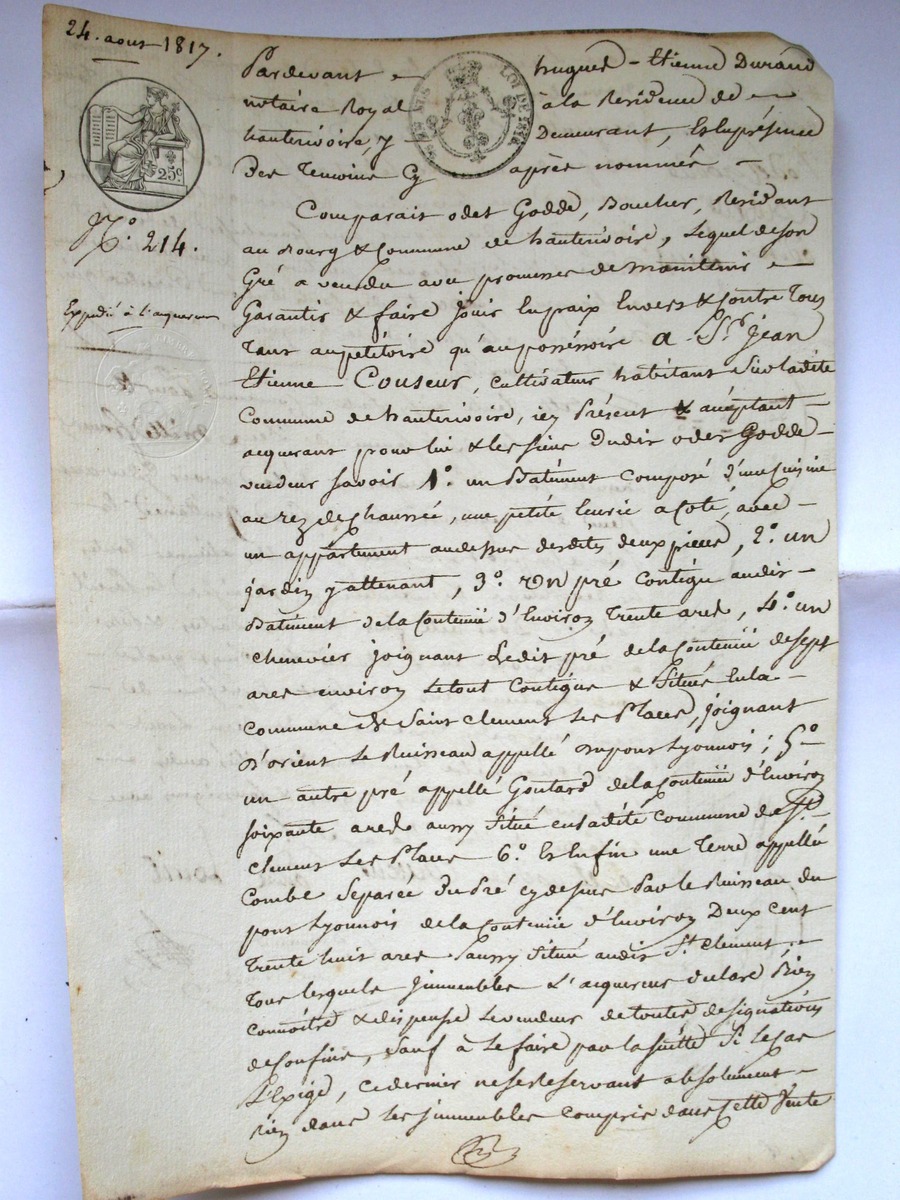 24. aout 1817.
Pardevant hugues - Etienne Durand
notaire Royal à la Residence de
hauterivoire, y Demeurant, Et En présence
Des Temoins Cy après nommés -
25c
N.o 214.
Comparait odet Godde, Boucher, Residant
au Bourg & Commune de hauterivoire, Lequel de son
Gré a vendu avec promesses de maintenir
Expedié à l'acquereur
Garantir & faire jouir En paix Envers & Contre Tous
Tant au petitoire qu'au possessoire a Sr. Jean
Etienne Couseur, cultivateur habitant Sur ladite
Commune de hauterivoire, icy Présent & acceptant -
acquerant pour lui & les siens Dudit odet Godde -
vendeur Savoir 1o. un Batiment Composé d'une Cuisine
au rez de Chaussée, une petite Ecurie a Coté, avec -
un appartement au dessus desdites deux pieces, 2o. un
jardin y attenant, 3o. un pré Contigu audit -
Batiment de la Contenue d'Environ Trente ares, 4o. un
chenevier joignant Ledit pré de la Contenue de sept
ares environ Le tout Contigue & Situés En la -
Commune de Saint Clement Les Places, joignant
D'orient Le Ruisseau appellé du pont Lyonnois; 5o
un autre pré appellé Goutard de la Contenue d'Environ
soixante ares aussy Situé en Ladite Commune de St.
Clement Les Places 6o. Et Enfin une Terre appellée
Combe Separée du Pré cy dessus Par le Ruisseau du
pont Lyonnois de la Contenue d'Environ Deux Cent
Trente huit ares aussy Située audit St. Clement, -
Tous lesquels jmmeubles L'acquereur declare Bien
Connoitre & dispense Le vendeur de toutes designations
de Confins, Sauf à Le faire par la Suitte Si Le Cas
L'Exige, ce dernier ne se Reservant absolument -
Rien dans Les jmmeubles Compris dans Cette Vente